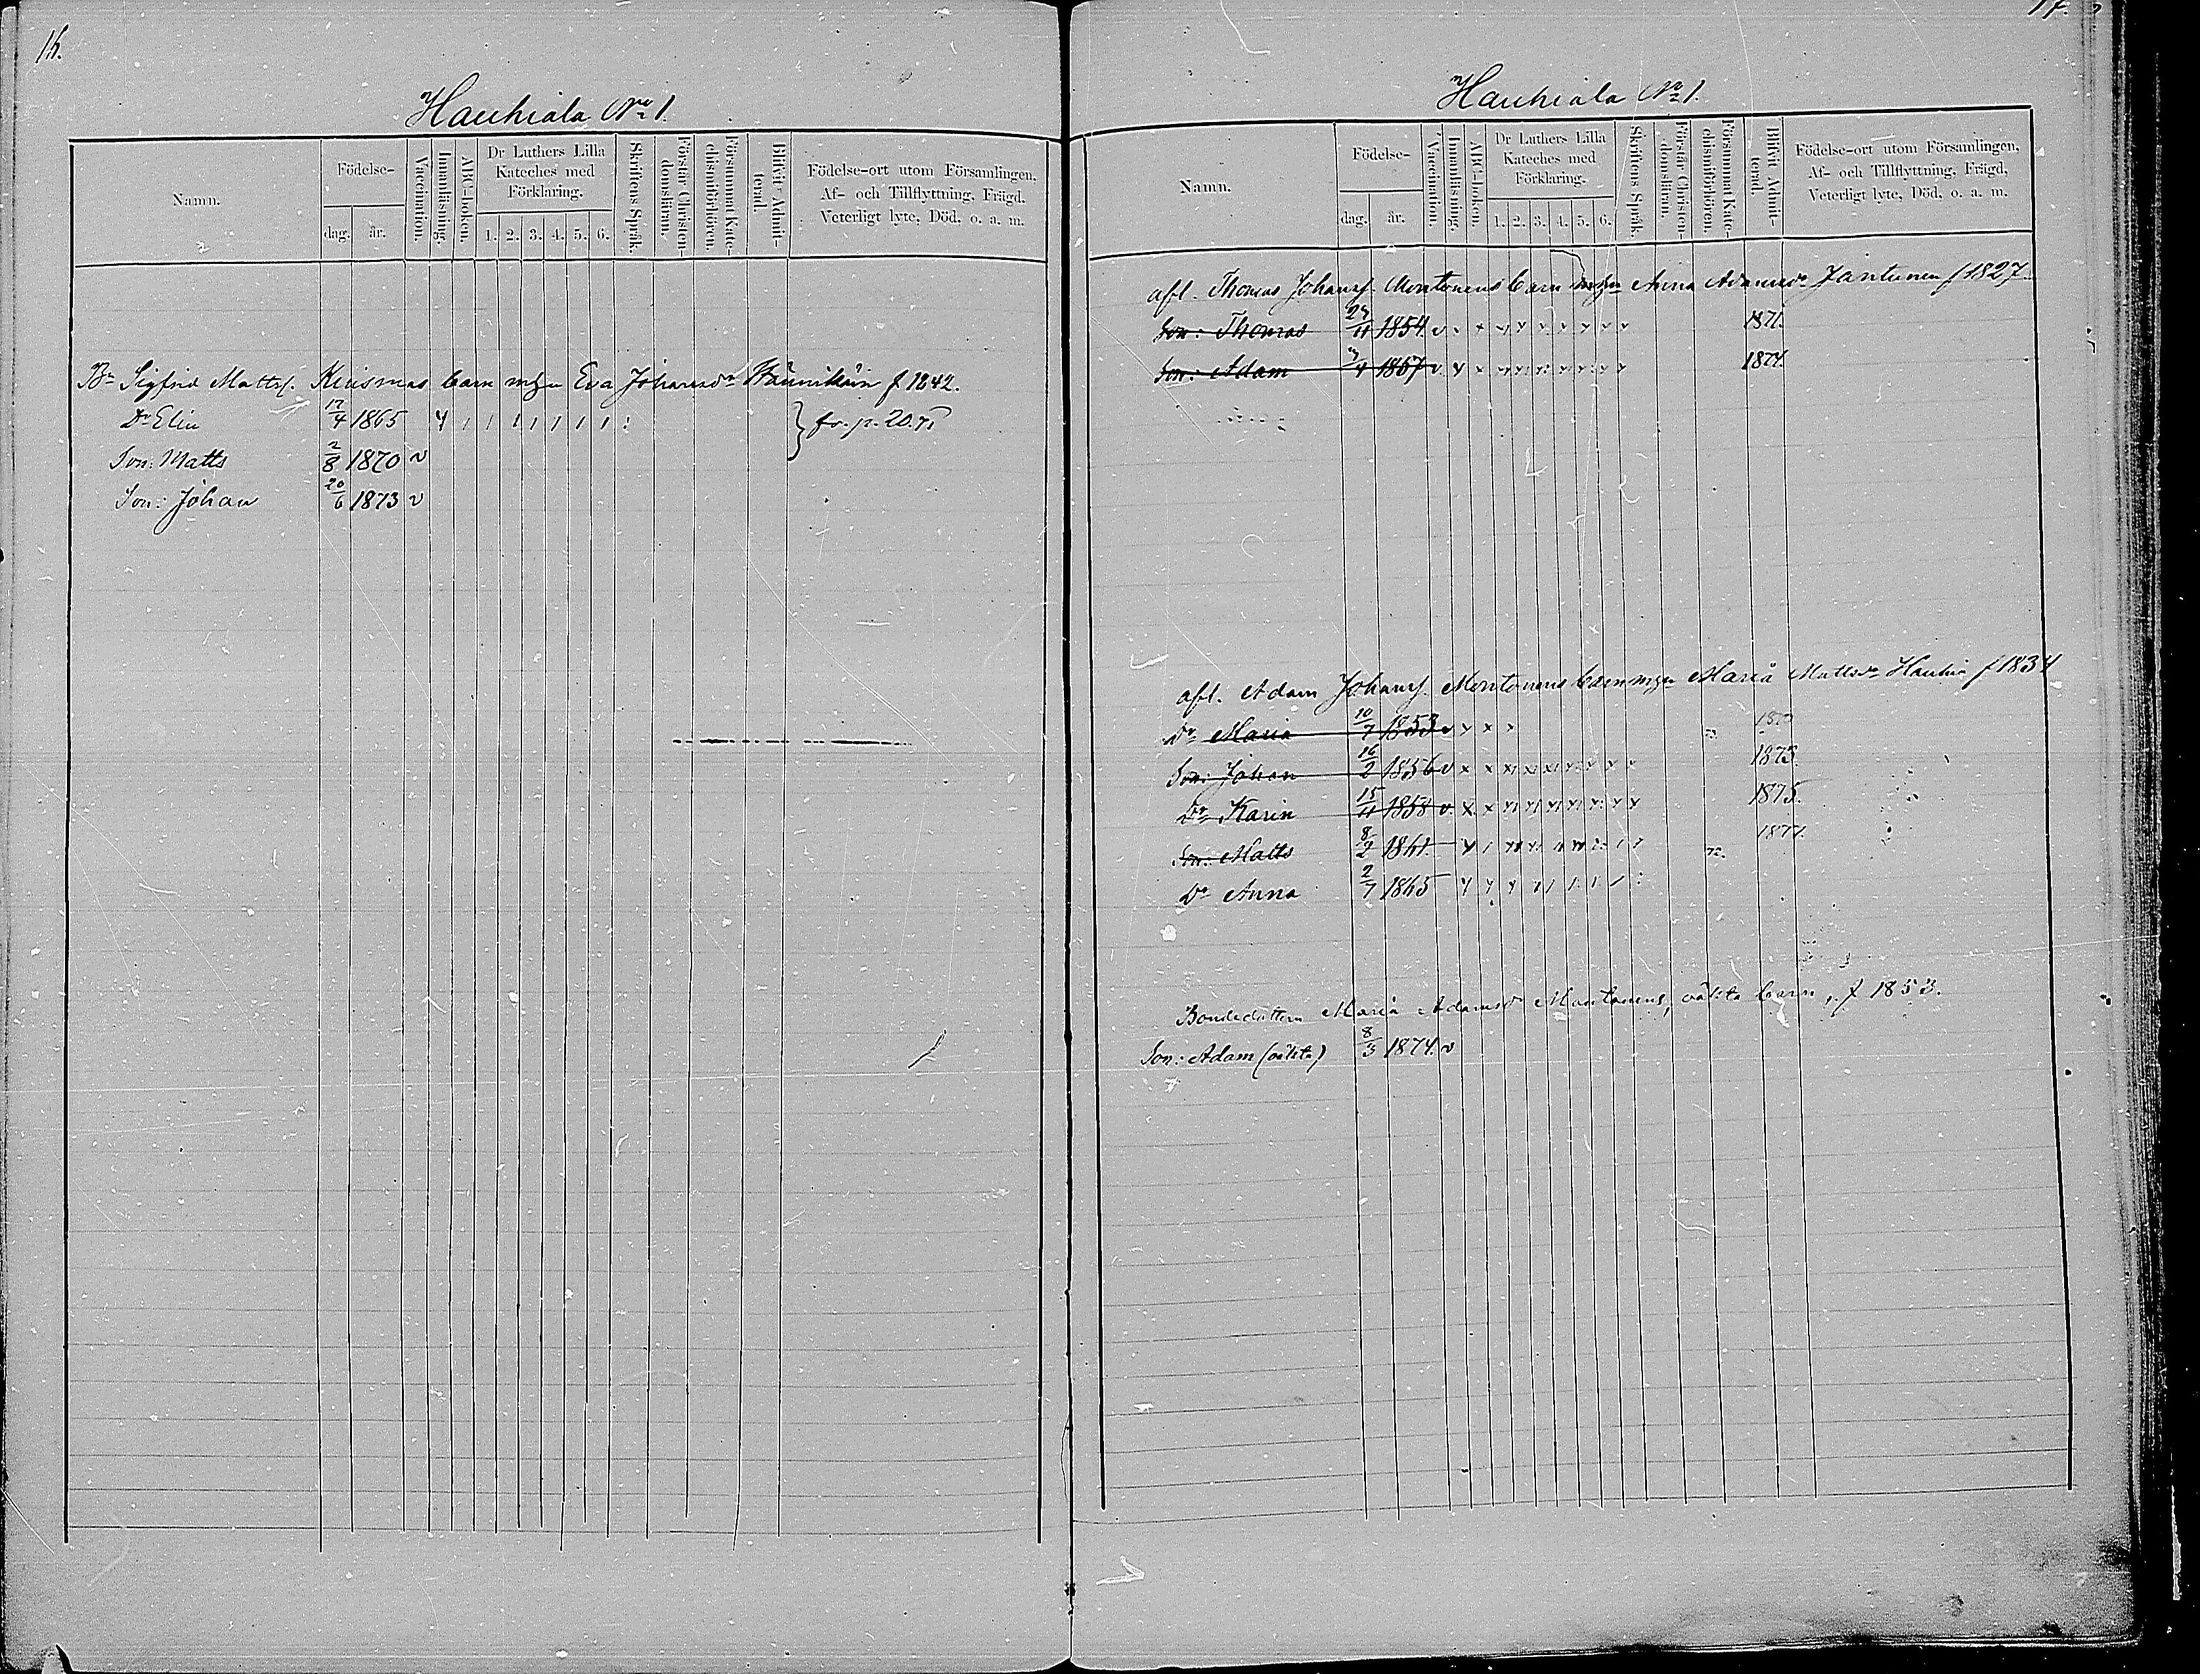 16.
Hauhiala No 1.
Namn.
Födelse-
dag.
år.
Vaccination.
Innanläsning.
ABC-boken.
Dr Luthers Lilla Kateches med Förklaring.
1. 2. 3. 4. 5. 6.
Skriftens Språk.
Förstår Christendomsläran.
Försummat Katechismiförhören.
Blifvit Admitterad.
Födelse-ort utom Församlingen,
Af- och Tillflyttning, Frägd,
Veterligt lyte, Död, o. a. m.
Bn Sigfrid Mattss. Kuismas barn m hu Eva Johansdr f 1842.
Dr Elin 17/4 1865 } fr. p. 20.
Son: Matts 2/8 1870 v
Son: Johan 20/6 1873 v
17.
Hauhiala No 1.
Namn.
Födelse-
dag.
år.
Vaccination.
Innanläsning.
ABC-boken.
Dr Luthers Lilla Kateches med Förklaring.
1. 2. 3. 4. 5. 6.
Skriftens Språk.
Förstår Christendomsläran.
Försummat Katechismiförhören.
Blifvit Admitterad.
Födelse-ort utom Församlingen,
Af- och Tillflyttning, Frägd,
Veterligt lyte, Död, o. a. m.
afl. Thomas Johanss. Montonens barn Anna Adamsdr Jantunen f 1827
Son: Thomas 1854 v 1871.
Son: Adam 1857 v 1874.
afl. Adam Johanss. Montonens barn Maria Mattsdr Hauhia f 1834
Dr Maria 10/7 1853 v
Son: Johan 16/2 1856 v 1873
Dr Karin 15/11 1858 v 1875.
Son: Matts 8/2 1861. 1877.
Dr Anna 2/7 1865
Bondedottern Maria Adamsdr Montonens, oäkta barn, f 1853.
Son: Adam (oäkta) 8/3 1874. v